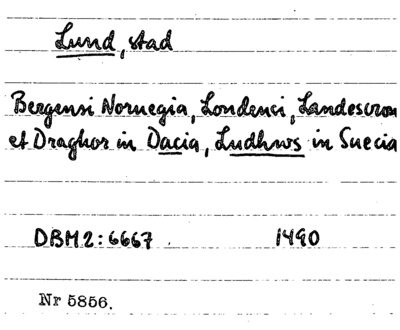 Lund, stad
Bergensi Noruegia, Londenci, Landescron
et Draghor in Dacia, Ludhws in Suecia
DBM2:6667 1490
Nr 5856.